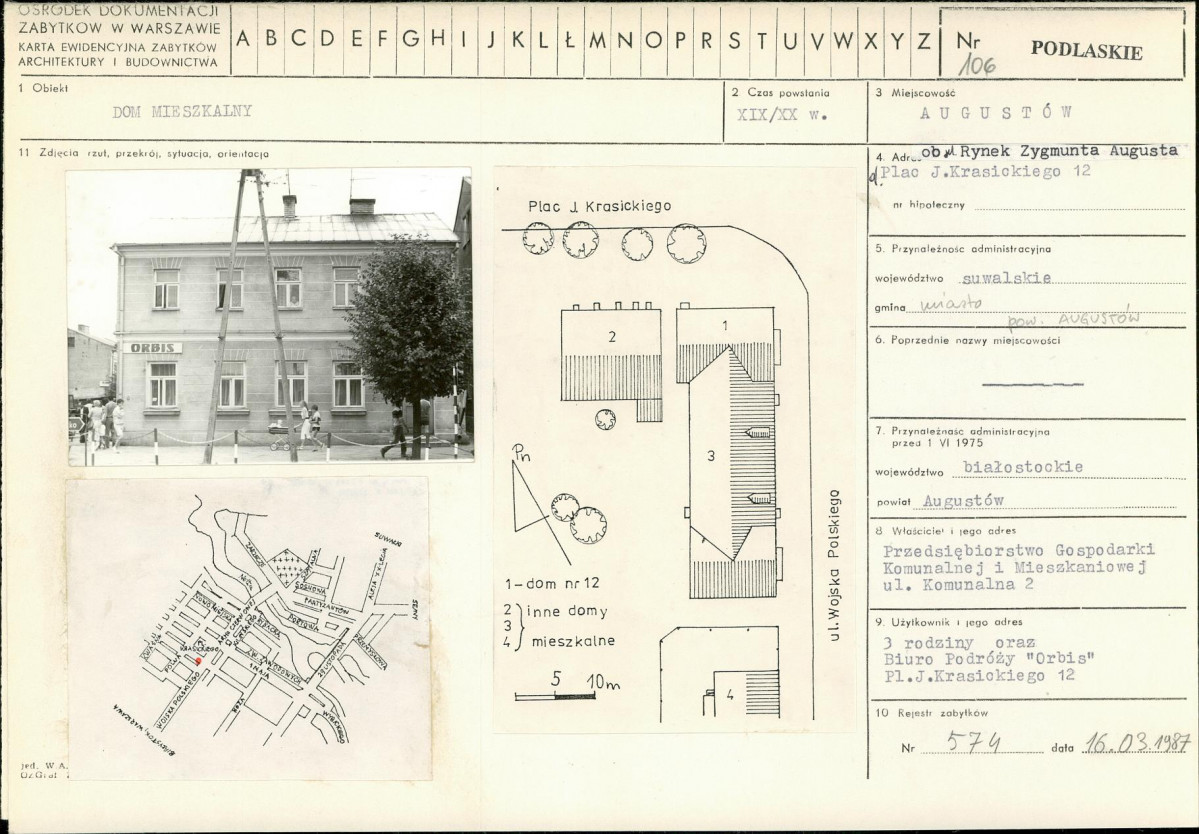 OŚRODEK DOKUMENTACJI
ZABYTKÓW W WARSZAWIE
KARTA EWIDENCYJNA ZABYTKÓW
ARCHITEKTURY I BUDOWNICTWA
A B C D E F G H I J K L Ł M N O P R S T U V W X Y Z
Nr
106
PODLASKIE
1 Obiekt
DOM MIESZKALNY
2 Czas powstania
XIX/XX w.
3 Miejscowość
AUGUSTÓW
11 Zdjęcia rzut, przekrój, sytuacja, orientacja
4. Adres
ob. Rynek Zygmunta Augusta
d. Plac J.Krasickiego 12
nr hipoteczny
5. Przynależność administracyjna
województwo suwalskie
gmina miasto
pow. AUGUSTÓW
6. Poprzednie nazwy miejscowości
7. Przynależność administracyjna
przed 1 VI 1975
województwo białostockie
powiat Augustów
8 Właściciel i jego adres
Przedsiębiorstwo Gospodarki
Komunalnej i Mieszkaniowej
ul. Komunalna 2
9. Użytkownik i jego adres
3 rodziny oraz
Biuro Podróży "Orbis"
Pl.J.Krasickiego 12
10 Rejestr zabytków
Nr 574 data 16.03.1987
ORBIS
Plac J. Krasickiego
1
2
3
4
Pn
ul. Wojska Polskiego
1-dom nr 12
2 inne domy
3
4 mieszkalne
5 10m
SUWAŁKI
SEJNY
ZARZECZE
SOSNOWA
PARTYZANTÓW
PORTOWA
RYBACKA
PRZEMYSŁOWA
29 LISTOPADA
1 MAJA
KRASICKIEGO
POLNA
WOJSKA POLSKIEGO
WYBICKIEGO
BIAŁYSTOK, WARSZAWA
jed. W.A.
OZGraf